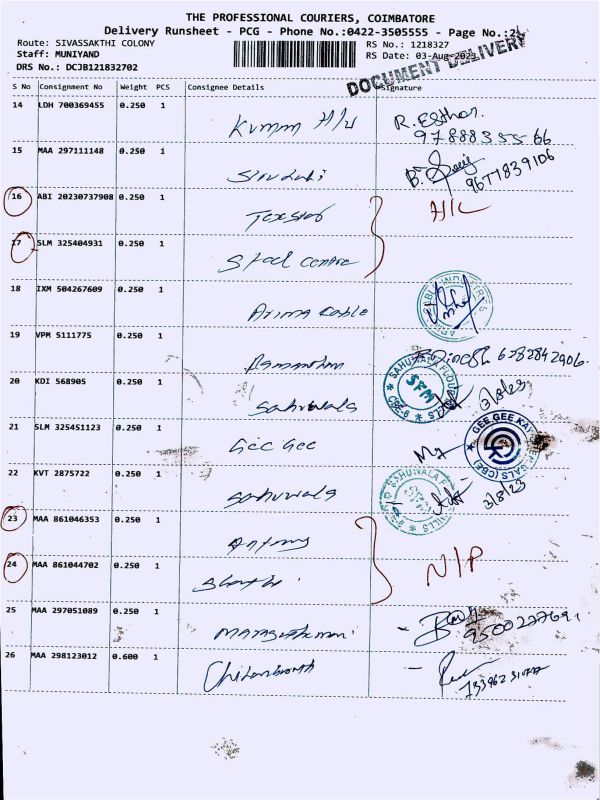 THE PROFESSIONAL COURIERS, COIMBATORE
Delivery Runsheet - PCG - Phone No.:0422-3505555 - Page No.:2
Route: SIVASSAKTHI COLONY RS No.: 1218327
Staff: MUNIYAND RS Date: 03-Aug-2023
DRS No.: DCJB121832702 DOCUMENT DELIVERY
S No Consignment No Weight PCS Consignee Details Signature
14 LDH 700369455 0.250 1 R. Esther.
97888355566
15 MAA 297111148 0.250 1
9677839106
16 ABI 20230737908 0.250 1 Texstar H/C
17 SLM 325404931 0.250 1 Steel centre
18 IXM 504267609 0.250 1 Prima Cable
19 VPM 5111775 0.250 1 6382842906
20 KDI 568905 0.250 1 Sahuwala SAHUWALA FLOUR MILLS SFM CBE-6 3/8/23
21 SLM 325451123 0.250 1 Gee Gee GEE GEE KAY (CBE)
22 KVT 2875722 0.250 1 Sahuwala 3/8/23
23 MAA 861046353 0.250 1 Antony N/P
24 MAA 861044702 0.250 1
25 MAA 297051089 0.250 1
26 MAA 298123012 0.600 1